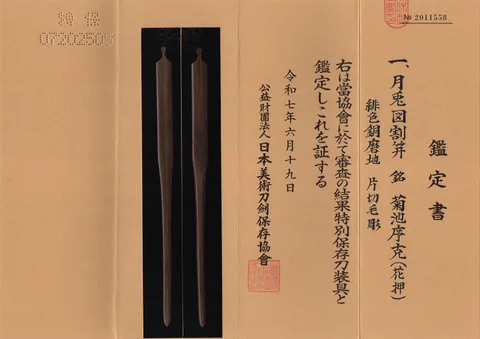 № 2011558
鑑定書
一、月兎図割笄 銘 菊池序克(花押)
緋色銅磨地 片切毛彫
右は當協會に於て審査の結果特別保存刀装具と
鑑定しこれを証する
令和七年六月十九日
公益財團法人 日本美術刀劍保存協會
特保